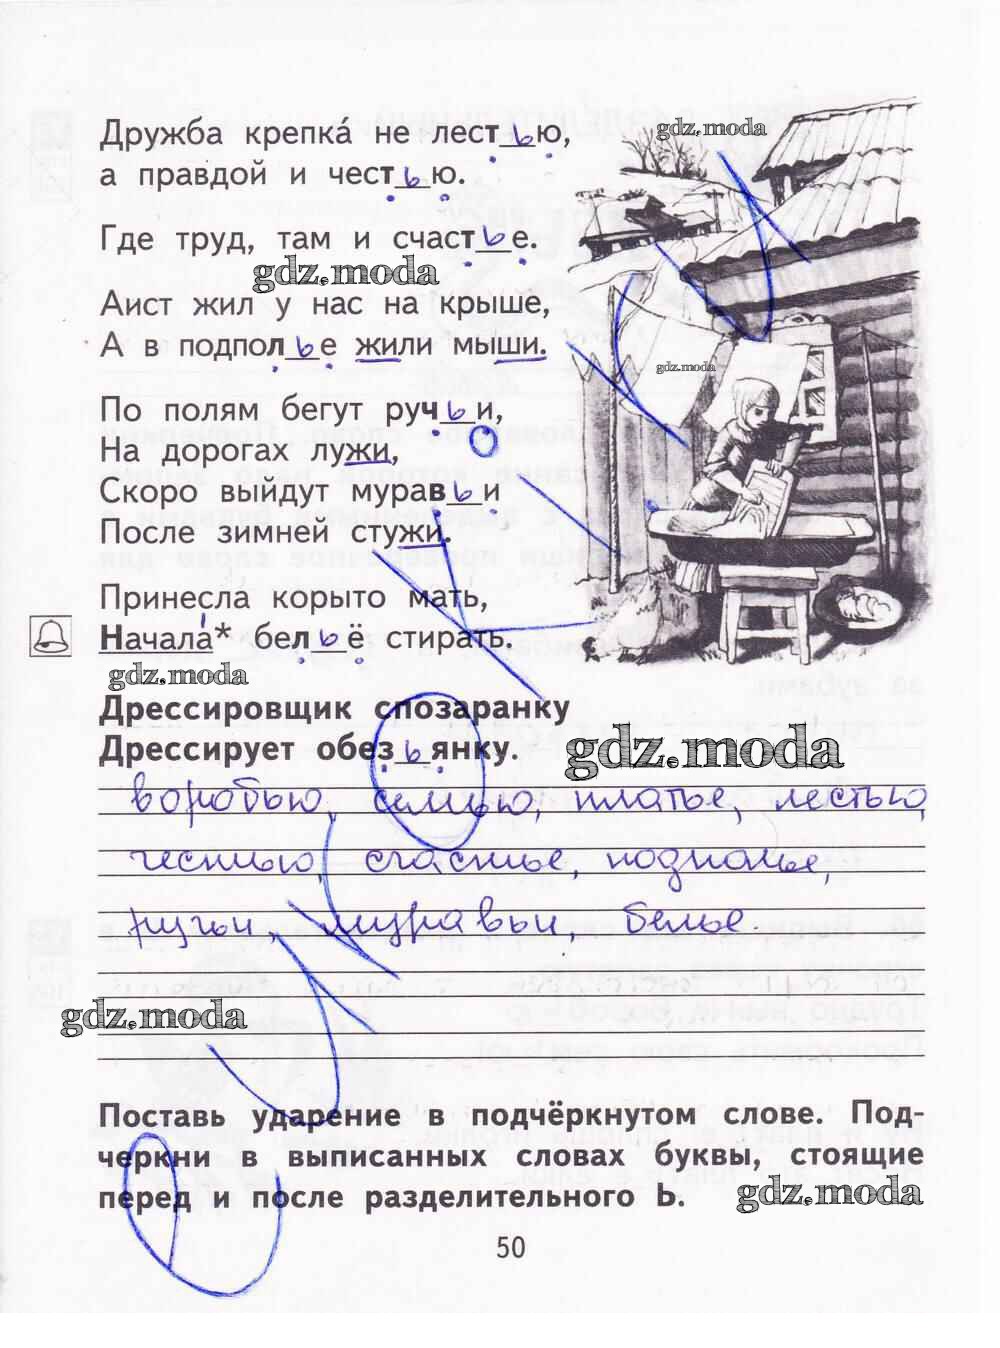 Дружба крепка́ не лестью,
а правдой и честью.
Где труд, там и счастье.
gdz.moda
gdz.moda
Аист жил у нас на крыше,
А в подполье жили мыши.
gdz.moda
По полям бегут ручьи,
На дорогах лужи,
Скоро выйдут муравьи
После зимней стужи.
Принесла корыто мать,
Начала́* бельё стирать.
gdz.moda
Дрессировщик спозаранку
Дрессирует обезьянку.
gdz.moda
воробью, семью, платье, лестью,
честью, счастье, подполье,
ручьи, муравьи, белье.
gdz.moda
Поставь ударение в подчёркнутом слове. Под-
черкни в выписанных словах буквы, стоящие
перед и после разделительного Ь.
gdz.moda
50